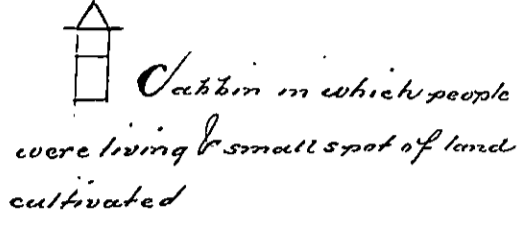 Cabbin in which people
were living & small spot of land
cultivated